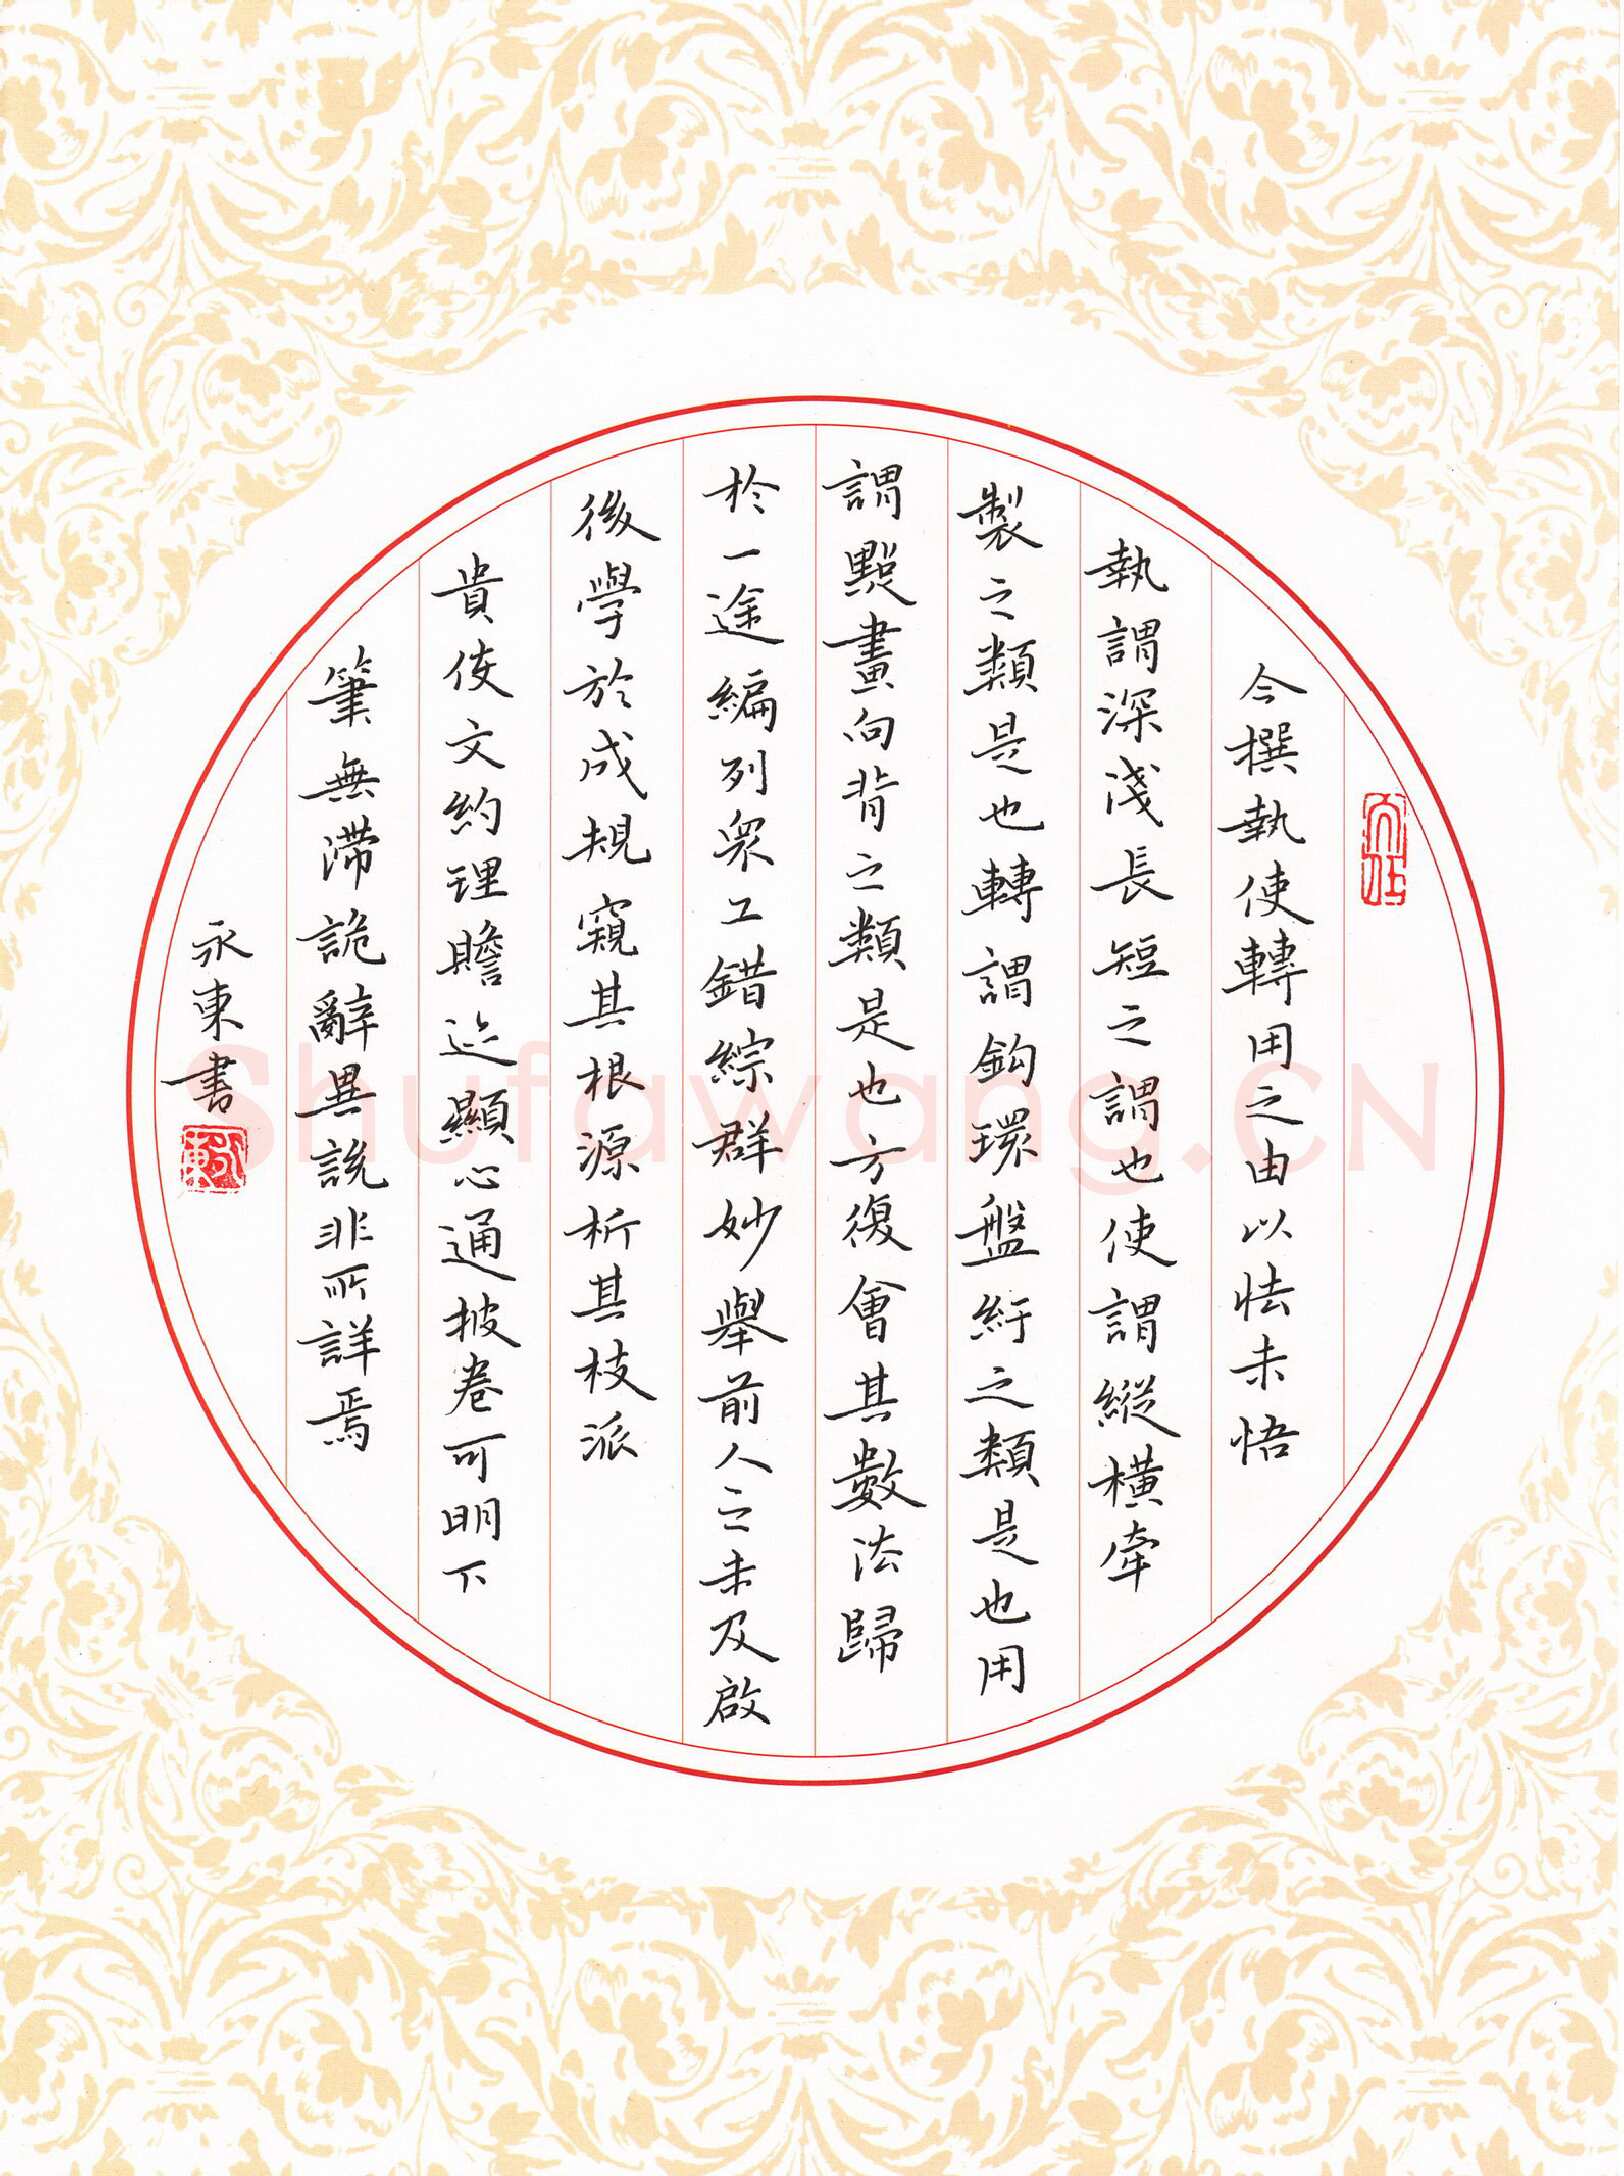 今撰執使轉用之由以怯未悟
執謂深淺長短之謂也使謂縱橫牽
製之類是也轉謂鈎環盤紆之類是也用
謂點畫向背之類是也方復會其數法歸
於一途編列眾工錯綜群妙舉前人之未及啟
後學於成規窺其根源析其枝派
貴使文約理贍迹顯心通披卷可明下
筆無滯詭辭異說非所詳焉
永東書
Shufawang.CN